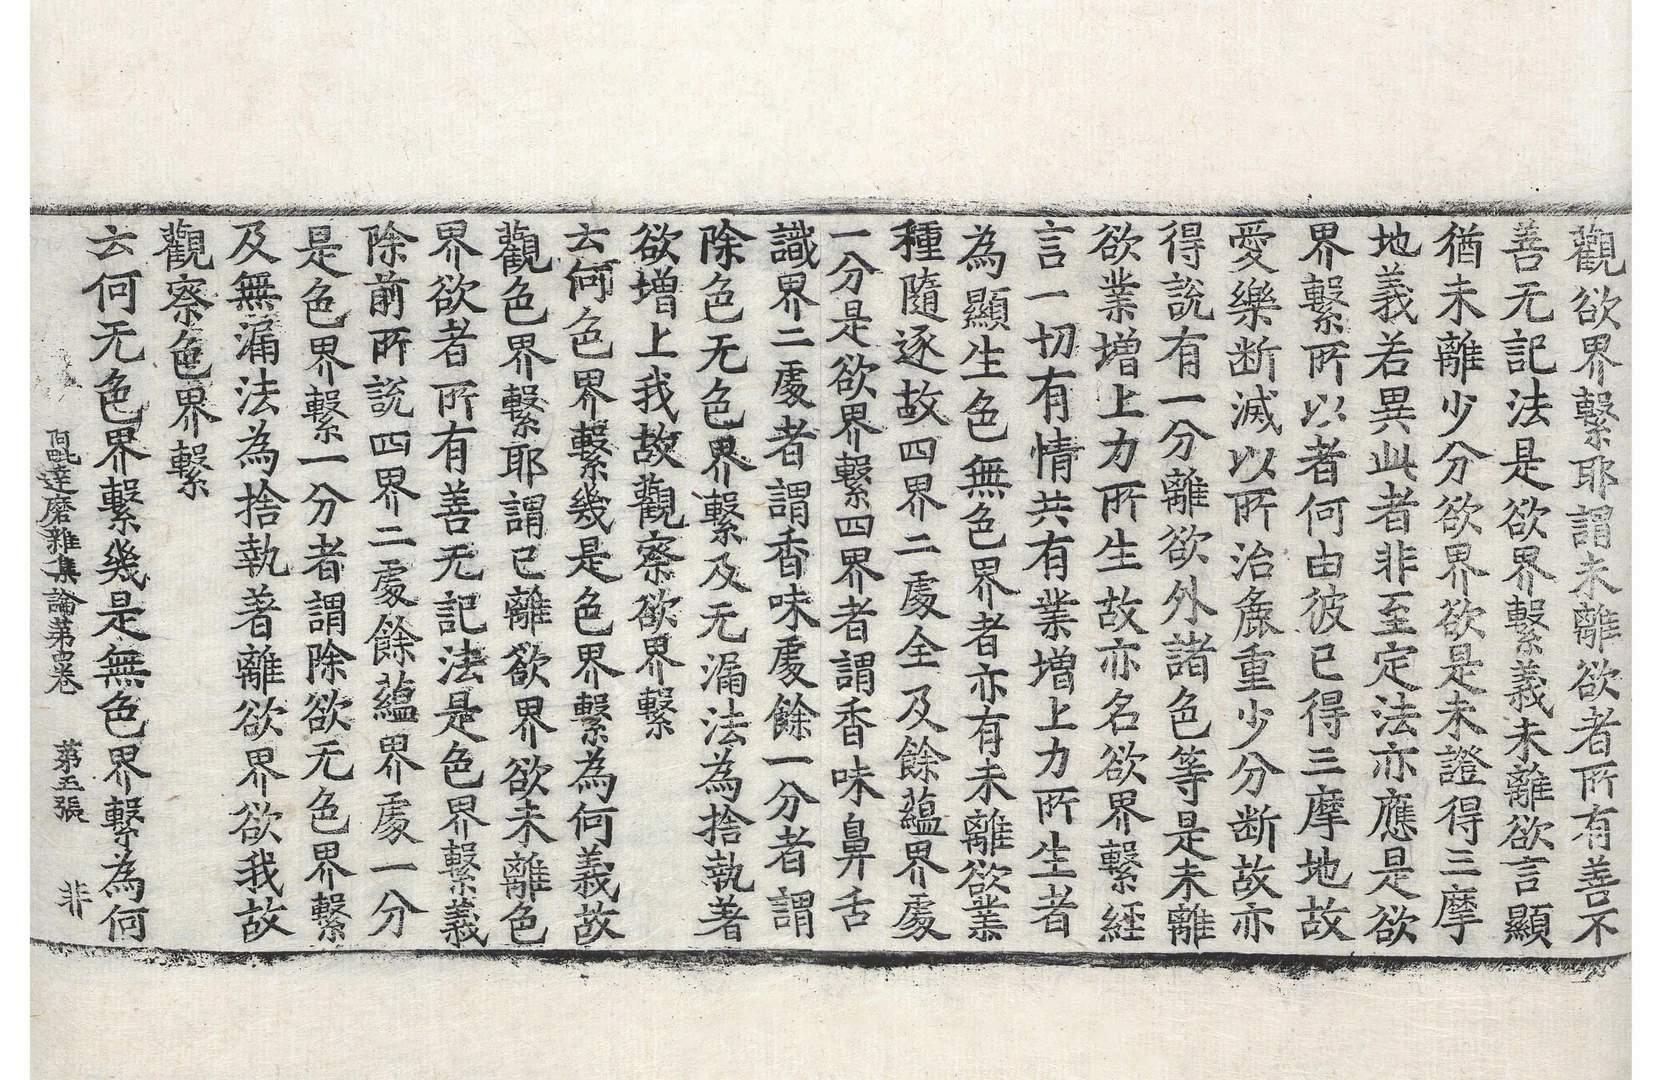 觀欲界繫耶謂未離欲者所有善不
善无記法是欲界繫義未離欲言顯
猶未離少分欲界欲是未證得三摩
地義若異此者非至定法亦應是欲
界繫所以者何由彼已得三摩地故
愛樂断滅以所治麁重少分断故亦
得說有一分離欲外諸色等是未離
欲業增上力所生故亦名欲界繫經
言一切有情共有業增上力所生者
為顯生色無色界者亦有未離欲業
種隨逐故四界二處全及餘蘊界處
一分是欲界繫四界者謂香味鼻舌
識界二處者謂香味處餘一分者謂
除色无色界繫及无漏法為捨執著
欲增上我故觀察欲界繫
云何色界繫幾是色界繫為何義故
觀色界繫耶謂已離欲界欲未離色
界欲者所有善无記法是色界繫義
除前所說四界二處餘蘊界處一分
是色界繫一分者謂除欲无色界繫
及無漏法為捨執著離欲界欲我故
觀察色界繫
云何无色界繫幾是無色界繫為何
阿毗達磨雜集論第四卷 第五張 非